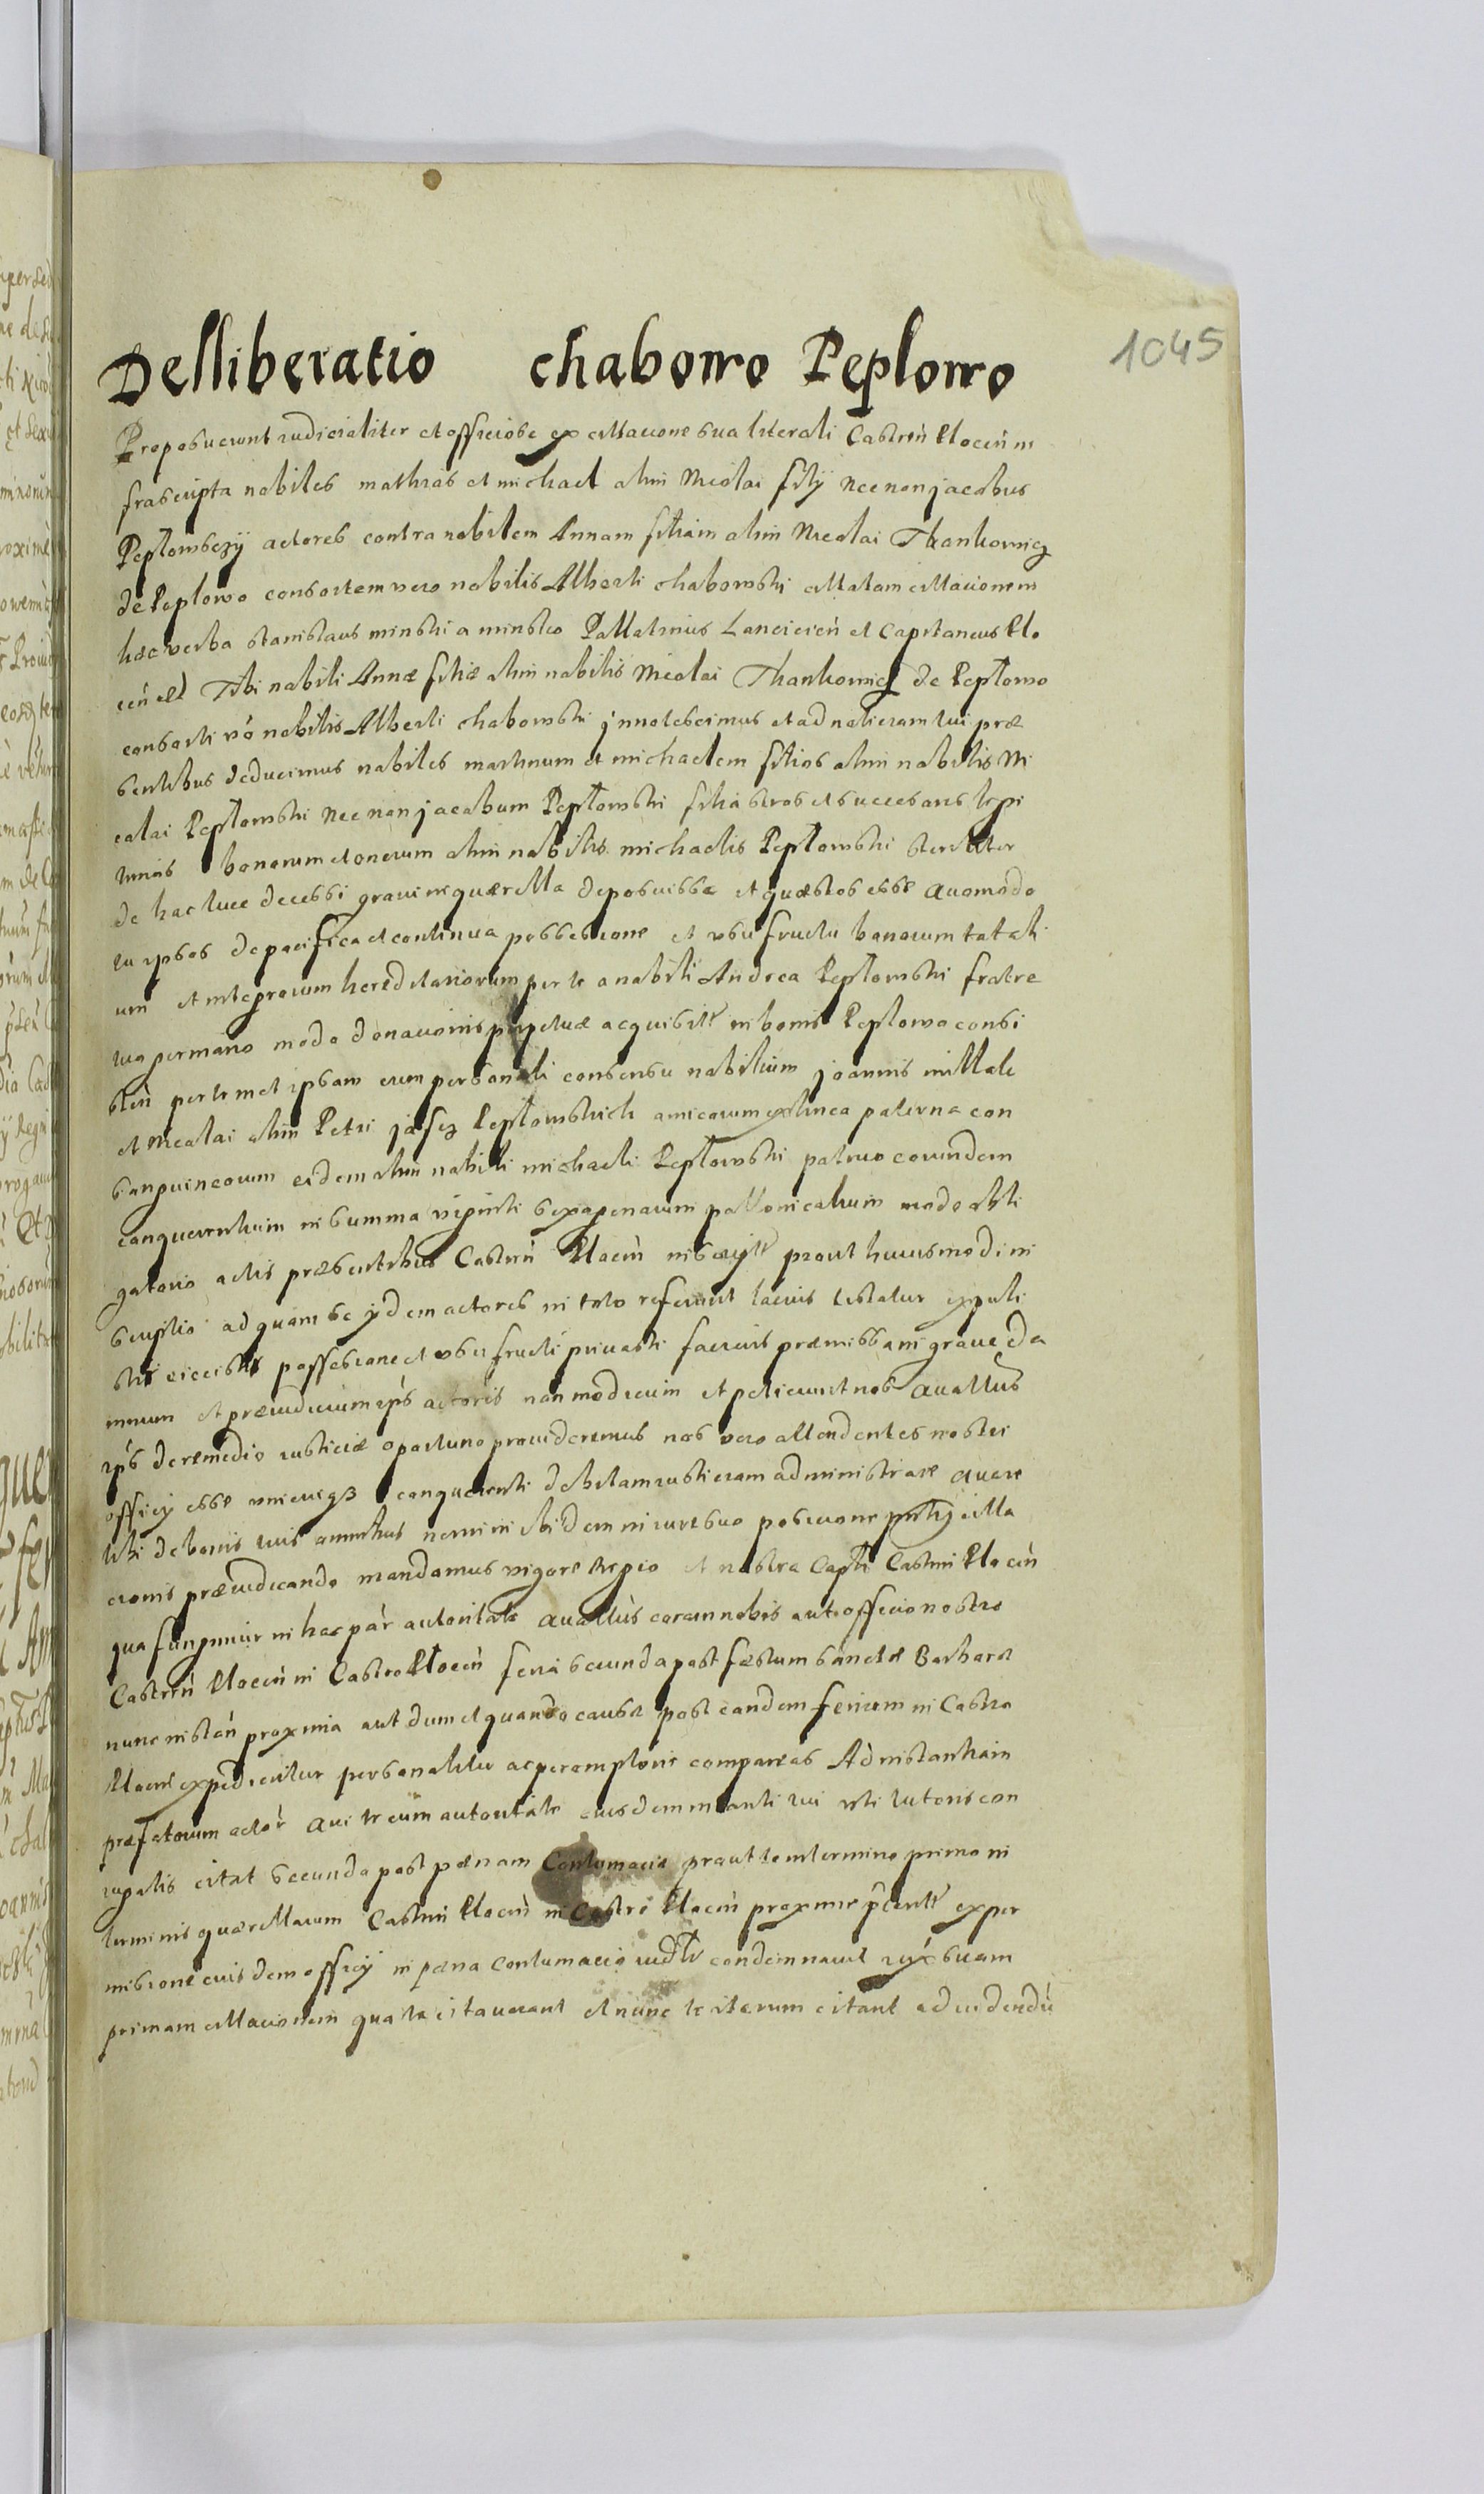 1045
Delliberatio chabowo Peplowo
Proposuerunt iudicialiter et officiose ex cittacione sua literali Castreń Plocień in
frascripta nobiles mathias et michael olim Nicolai filij Nec non jacobus
Peplowsczy actores contra nobilem Annam filiam olim Nicolai Thankowicz
de Peplowo consortem vero nobilis Alberti chabowski cittatam cittacionem
hæc verba stanislaus minski a minsko Pallatinus Lancicień et Capitaneus Plo
cień etc Tibi nobili Annæ filiæ olim nobilis Nicolai Thankowicz de Peplowo
consorti vo nobilis Alberti chabowski jnnotescimus et ad noticiam tui præ
sentibus deducimus nobiles martinum et michaelem filios olim nobilis Ni
colai Peplowski Nec non jacobum Peplowski filiastros et successores legi
timos bonorum et onerum olim nobilis michaelis Peplowski steriliter
de hac luce decessi gravi in quærella deposuisse et quæstos esse Quomodo
tu ipsos de pacifica et continua possessione et usufructu bonorum totali
um et integrorum hereditariorum per te a nobili Andrea Peplowski fratre
tuo germano modo donacionis perpetuæ acquisitt in bonis Peplowo consi
steń per temet ipsam cum personali consensu nobilium joannis
et Nicolai olim Petri Peplowskich amicorum ex linea paterna con
sanguineorum eidem olim nobili michaeli Peplowski patruo eorundem
conquerentium in summa viginti sexagenarum pollonicalium modo obli
gatorio actis præsentibus Castreń Plocień inscriptt prout huiusmodi in
scriptio ad quam se ijdem actores in toto referunt lacius testatur expuli
sti eiecisti possessione et usu fructu privasti faciens præmissa in grave da
mnum et præiudicium ips actoris non modicum et petierunt nos Quattus
ips de remedio iusticiæ oportuno provideremus nos vero attendentes nostri
officij esse unicuiqз conquerenti debitam iusticiam administrare Quare
tibi de bonis tuis omnibus nemini ibidem in iure suo posicione
cionis præiudicando mandamus vigore Regio et nostra Captli Castreń Plocień
qua fungimur in hac par autoritate Quattus coram nobis aut officio nostro
Castreń Plocień in Castro Plocień feria secunda post fæstum sanctæ Barbaræ
nunc insteń proxima aut dum et quando causæ post eandem feriam in Castro
Plocień expedientur personaliter ac peremptorie compareas Ad instantiam
præfatorum actor Qui te cum autoritate eiusdem mariti tui uti tutoris con
iugalis citat secunda post pænam Contumaciæ prout te in termino primo in
terminis quærellarum Castreń Plocień in Castro Plocień proxime exper
misione eius dem officij in pæna Contumacio condemnavit suam
primam cittacionem qua te citaverant et nunc te iterum citant ad videndū